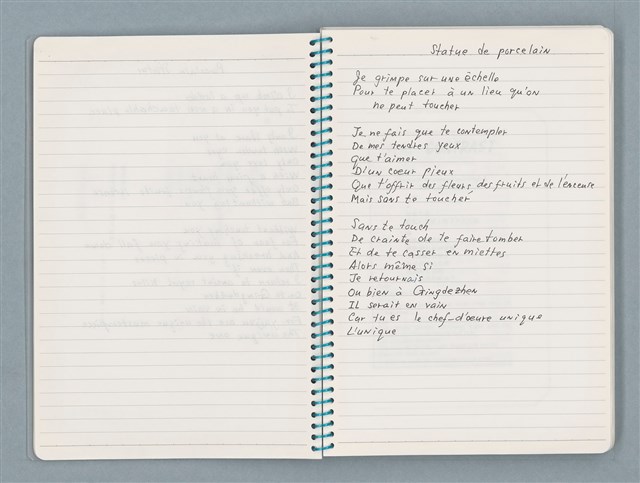 Statue de porcelain
Je grimpe sur une èchelle
Pour te placer à un lieu qu'on
ne peut toucher
Je ne fais que te contempler
De mes tendres yeux
Que t'aimer
D'un coeur pieux
Que t'offrir des fleurs, des fruits et de l'encense
Mais sans te toucher
Sans te touch
De crainte de te faire tomber
Et de te casser en miettes
Alors même si
Je retournais
Ou bien à Gingdezhen
Il serait en vain
Car tu es le chef-d'oeure unique
L'unique